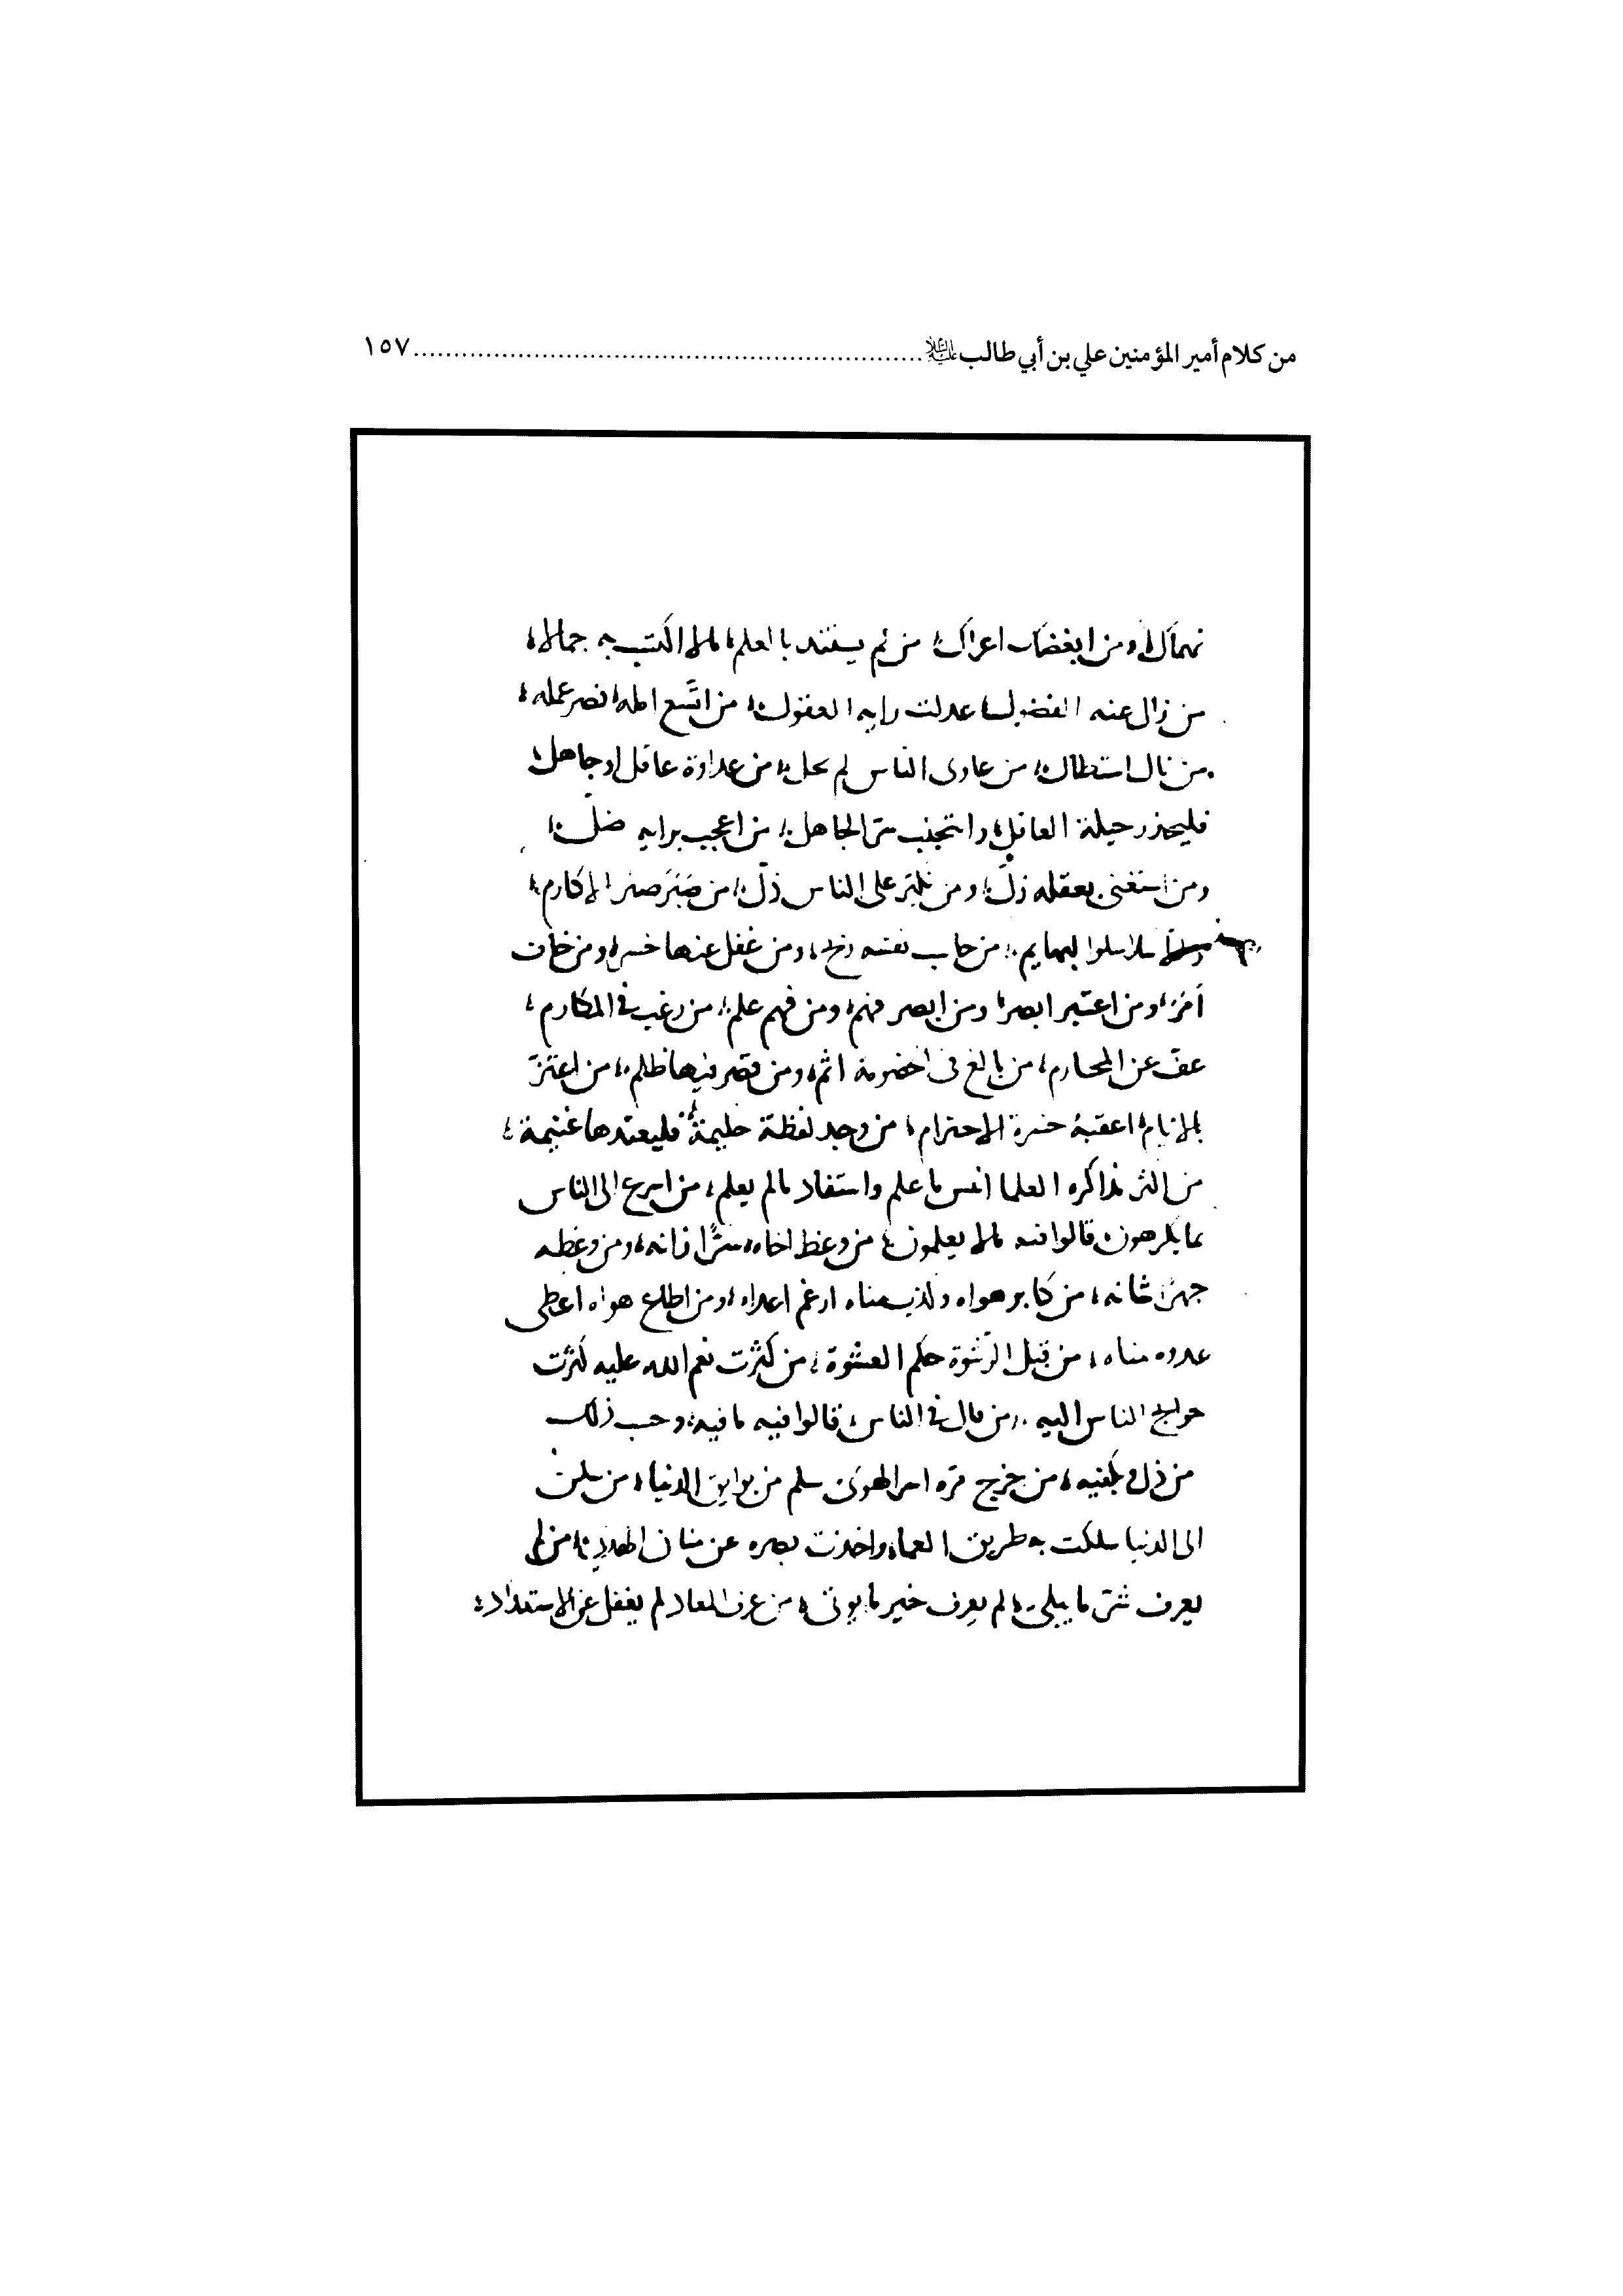 من كلام أمير المؤمنين علي بن أبي طالب عليه السلام ١٥٧
نهاك ومن ابغضك اعراك من لم يستند بالعلم مالا اكتسب به جمالا
من زال عنه الفضول عدلت رايه العقول من اتسع امله قصر عمله
من نال استطال من عادى الناس لم من عداوة عاقل او جاهل
فليحذر حيلة العاقل و الجاهل من اعجب برايه ضل
ومن استغنى بعقله زل ومن تكبر على الناس ذل من صبر صبر الاكارم
سلا سلوا البهايم من حاسب نفسه ربح ومن غفل عنها خسر ومن خاف
امن ومن اعتبر ابصر ومن ابصر فهم ومن فهم علم من رغب في المكارم
عف عن المحارم من بالغ في الخصومة اثم ومن قصر فيها ظلم من اغتر
اعقبه حسرة الاحترام من وجد لفظة حليمة فليعتدها غنيمة
من اكثر مذاكره العلما انس ما علم واستفاد مالم يعلم من اسرع الى الناس
بما يكرهون قالوا فيه مالا يعلمون من وعظ اخاه سرا زانه ومن وعظه
جهرا شانه من كابر هواه وكذب مناه ارغم اعداه ومن اطاع هواه اعطى
عدوه مناه من قبل الرشوة حكم العشوة من كثرت نعم الله عليه كثرت
حوايج الناس اليه من قال في الناس قالوا فيه ما فيه وحسب ذلك
من ذل يكفيه من خرج من اسر الهوى سلم من بوايق الدنيا من سكن
الى الدنيا سلكت به طريق العما واخذت بصره عن منار الهدى من لم
يعرف شر ما يبلى لم يعرف خير ما يوتى من عرف المعاد لم يغفل عن الاستعداد